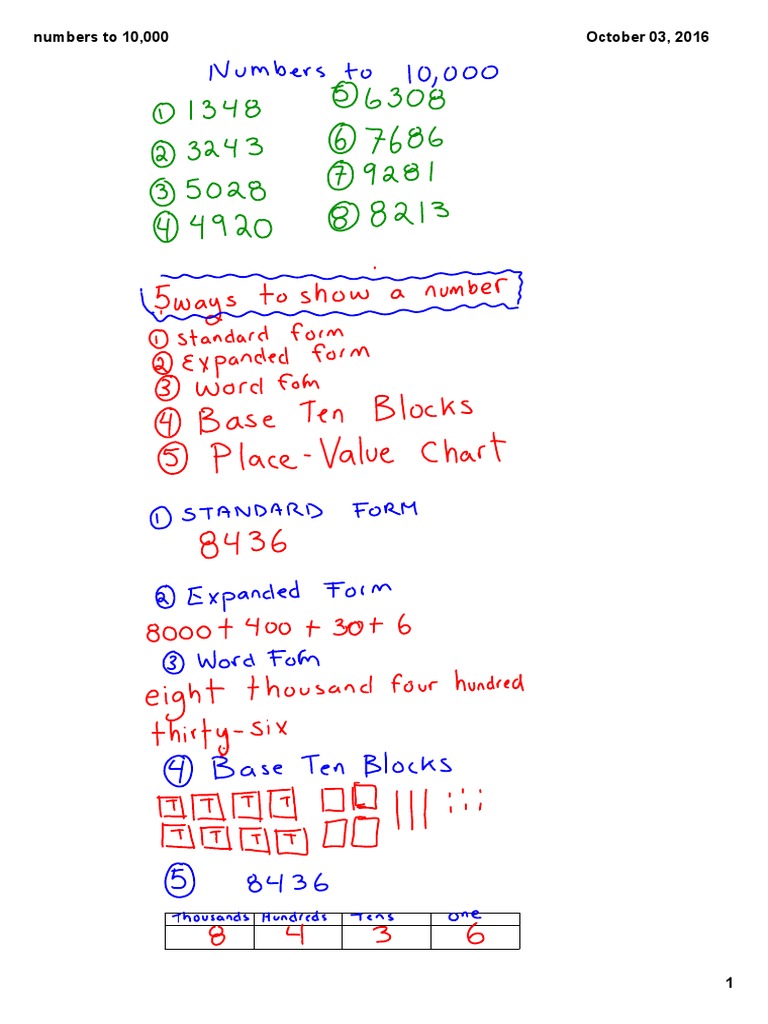 numbers to 10,000
October 03, 2016
Numbers to 10,000
① 1348
② 3243
③ 5028
④ 4920
⑤ 6308
⑥ 7686
⑦ 9281
⑧ 8213
5 ways to show a number
① standard form
② Expanded form
③ Word fom
④ Base Ten Blocks
⑤ Place-Value Chart
① STANDARD FORM
8436
② Expanded Form
8000 + 400 + 30 + 6
③ Word Fom
eight thousand four hundred
thirty-six
④ Base Ten Blocks
T T T T
T T T T
⑤ 8436
Thousands Hundreds Tens One
8 4 3 6
1